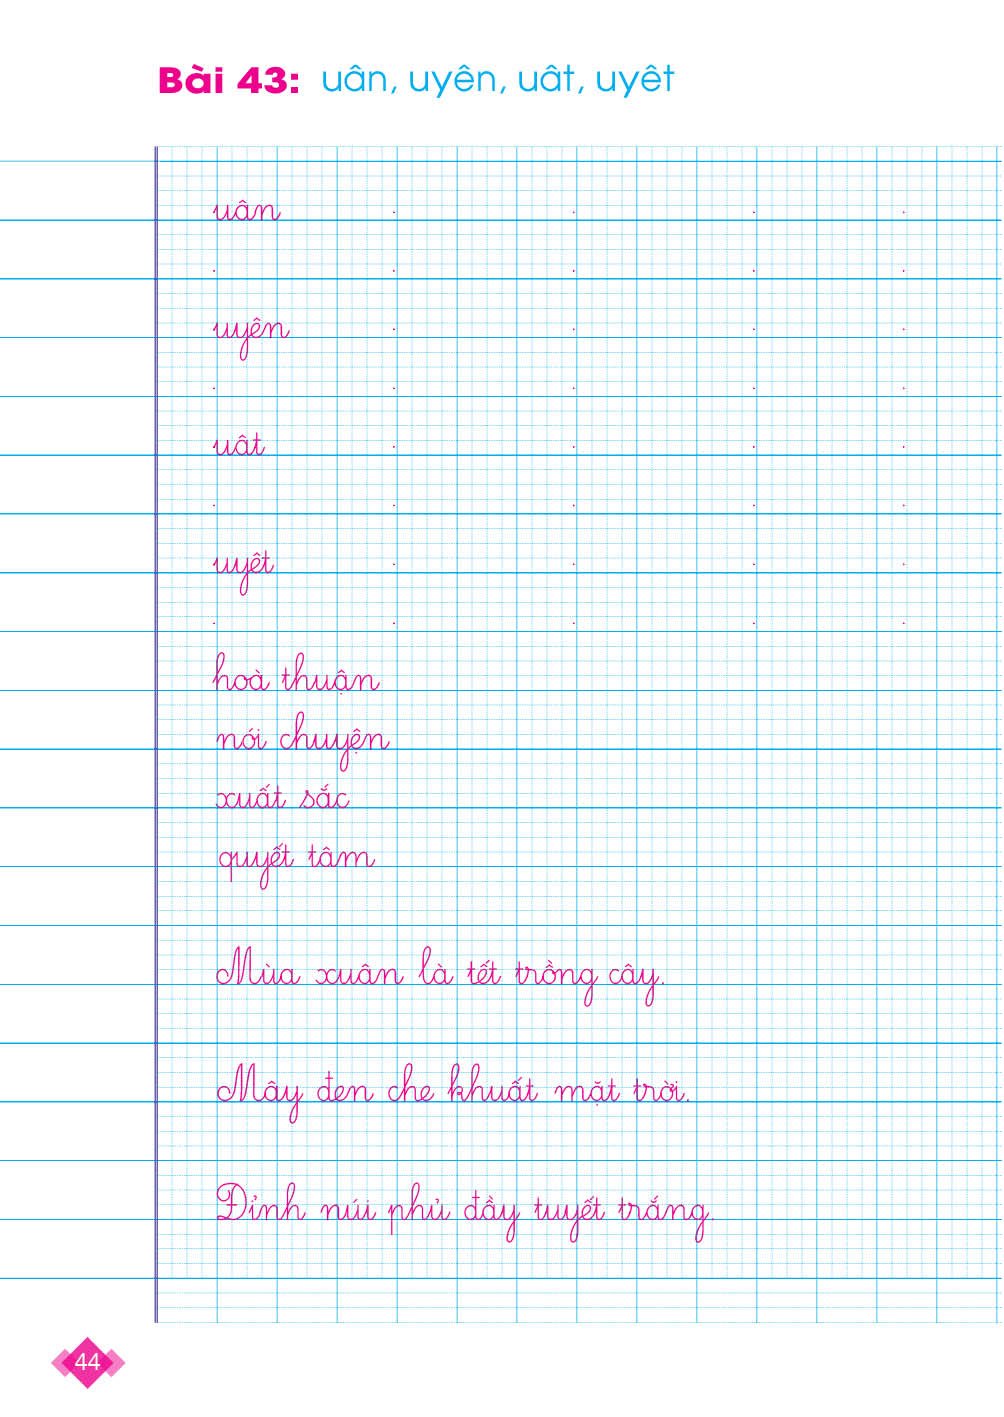 Bài 43: uân, uyên, uât, uyêt
uân
uyên
uât
uyêt
hoà thuận
nói chuyện
xuất sắc
quyết tâm
Mùa xuân là tết trồng cây.
Mây đen che khuất mặt trời.
Đỉnh núi phủ đầy tuyết trắng.
44